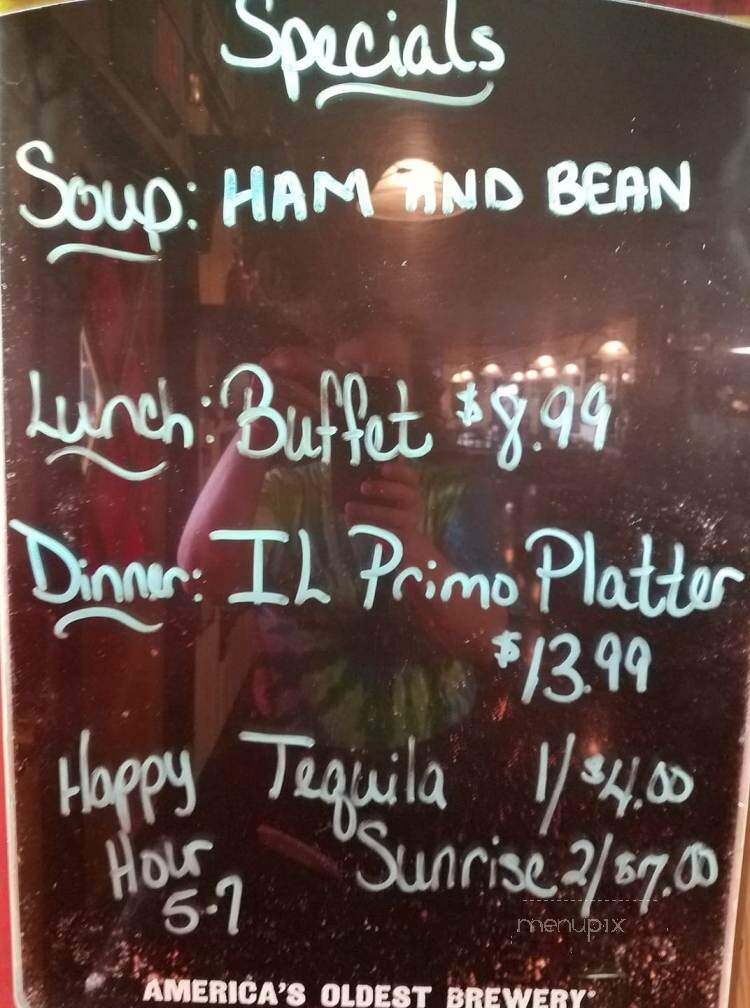 Specials
Soup: HAM AND BEAN
Lunch: Buffet $8.99
Dinner: IL Primo Platter
$13.99
Happy Tequila 1/$4.00
Hour Sunrise 2/$7.00
5-7
menupix
AMERICA'S OLDEST BREWERY®